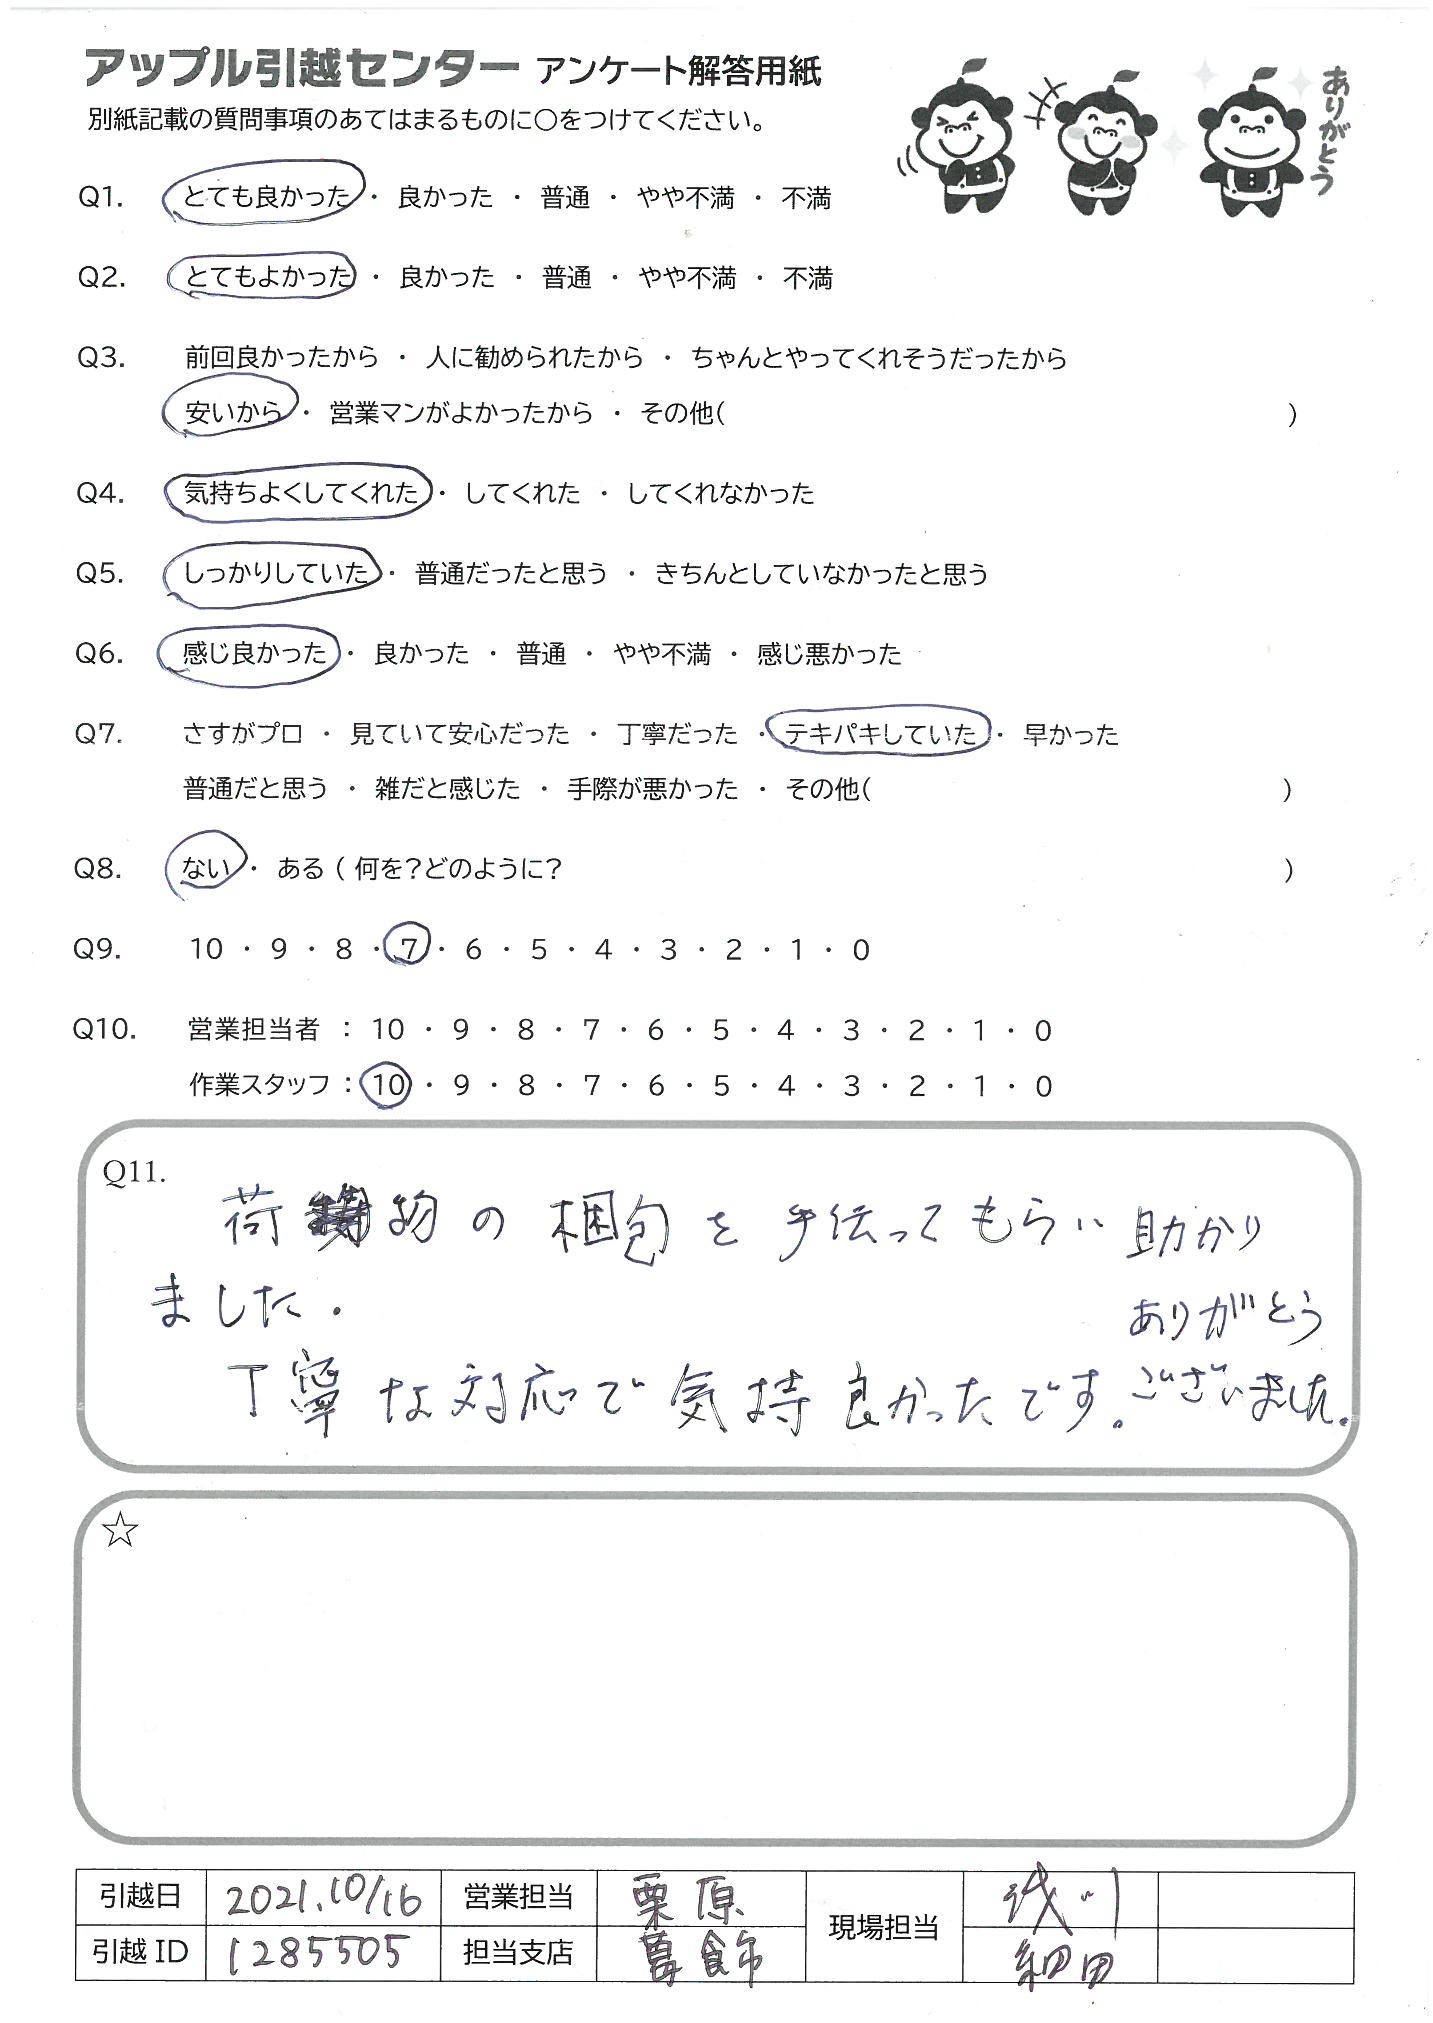 アップル引越センター アンケート解答用紙
別紙記載の質問事項のあてはまるものに〇をつけてください。
ありがとう
Q1. とても良かった ・ 良かった ・ 普通 ・ やや不満 ・ 不満
Q2. とてもよかった ・ 良かった ・ 普通 ・ やや不満 ・ 不満
Q3. 前回良かったから ・ 人に勧められたから ・ ちゃんとやってくれそうだったから
安いから ・ 営業マンがよかったから ・ その他( )
Q4. 気持ちよくしてくれた ・ してくれた ・ してくれなかった
Q5. しっかりしていた ・ 普通だったと思う ・ きちんとしていなかったと思う
Q6. 感じ良かった ・ 良かった ・ 普通 ・ やや不満 ・ 感じ悪かった
Q7. さすがプロ ・ 見ていて安心だった ・ 丁寧だった ・ テキパキしていた ・ 早かった
普通だと思う ・ 雑だと感じた ・ 手際が悪かった ・ その他( )
Q8. ない ・ ある ( 何を?どのように? )
Q9. 10 ・ 9 ・ 8 ・ 7 ・ 6 ・ 5 ・ 4 ・ 3 ・ 2 ・ 1 ・ 0
Q10. 営業担当者 : 10 ・ 9 ・ 8 ・ 7 ・ 6 ・ 5 ・ 4 ・ 3 ・ 2 ・ 1 ・ 0
作業スタッフ : 10 ・ 9 ・ 8 ・ 7 ・ 6 ・ 5 ・ 4 ・ 3 ・ 2 ・ 1 ・ 0
Q11.
荷物の梱包を手伝ってもらい助かり
ました.
丁寧な対応で気持良かったです.
ありがとう
ございました.
☆
引越日 2021.10/16 営業担当 栗原 現場担当 浅川
引越ID 1285505 担当支店 葛飾 細田